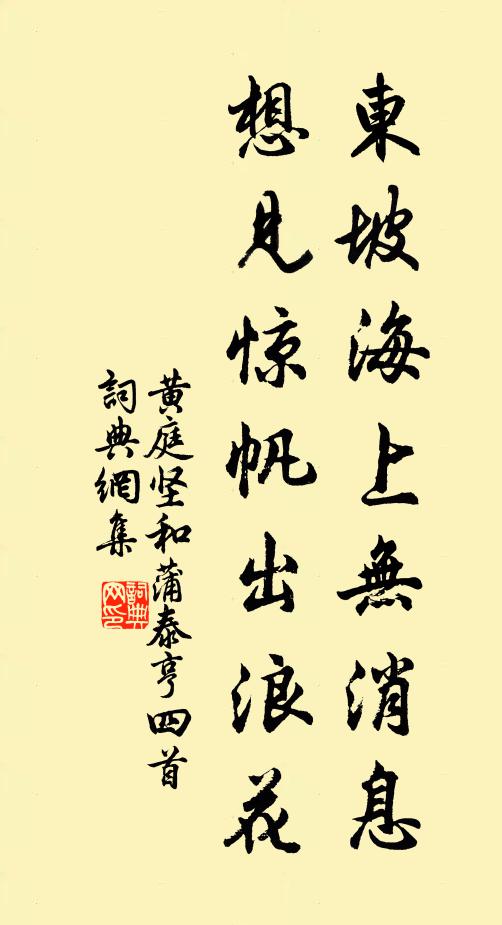 東坡海上無消息
想見惊帆出浪花
黄庭坚和蒲泰亨四首
詞典網集
詞典網印